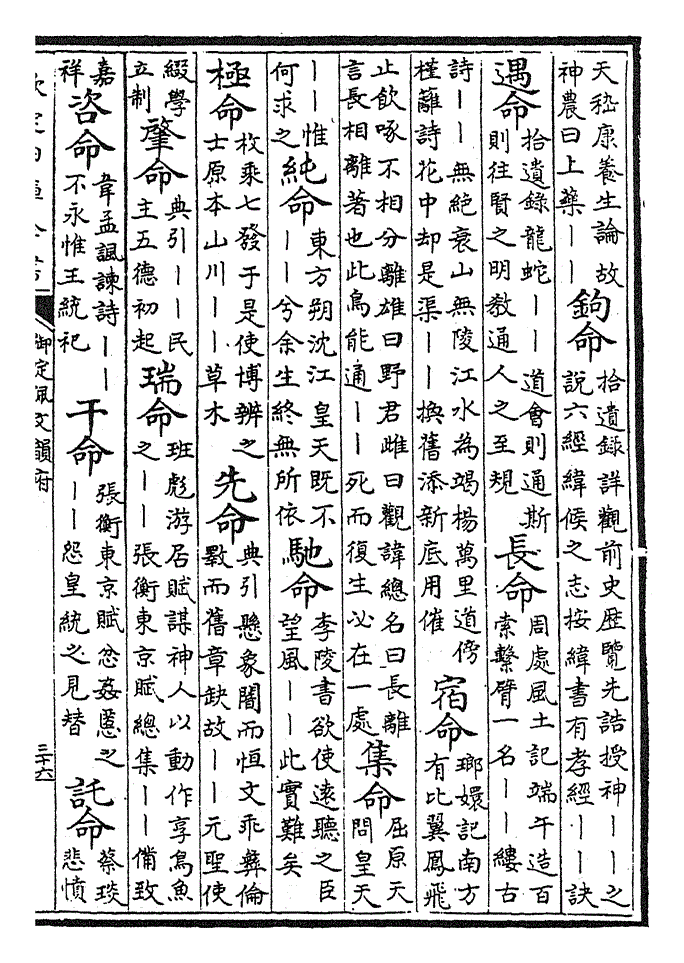 天嵇康養生論故神農曰上藥｜｜鉤命拾遺録詳觀前史歴覽先誥授神｜｜之説六經緯候之志按緯書有孝經｜｜訣
遇命拾遺録龍蛇｜｜道會則通斯則往賢之明教通人之至規長命周處風土記端午造百索繫臂一名｜｜縷古
詩｜｜無絶衰山無陵江水為竭楊萬里道傍槿籬詩花中却是渠｜｜換舊添新底用催宿命瑯嬛記南方有比翼鳳飛
止飲啄不相分離雄曰野君雌曰觀諱總名曰長離言長相離著也此鳥能通｜｜死而復生必在一處集命屈原天問皇天
｜｜惟何求之純命東方朔沈江皇天既不｜｜兮余生終無所依馳命李陵書欲使遠聽之臣望風｜｜此實難矣
極命枚乘七發于是使博辨之士原本山川｜｜草木先命典引懸象闇而恒文乖彝倫斁而舊章缺故｜｜元聖使
綴學立制肇命典引｜｜民主五德初起瑞命班彪游居賦謀神人以動作享鳥魚之｜｜張衡東京賦總集｜｜備致
嘉祥咨命韋孟諷諫詩｜｜不永惟王統祀干命張衡東京賦忿姦慝之｜｜怨皇統之見替託命蔡琰悲憤
欽定四庫全書
御定佩文韻府
三十六